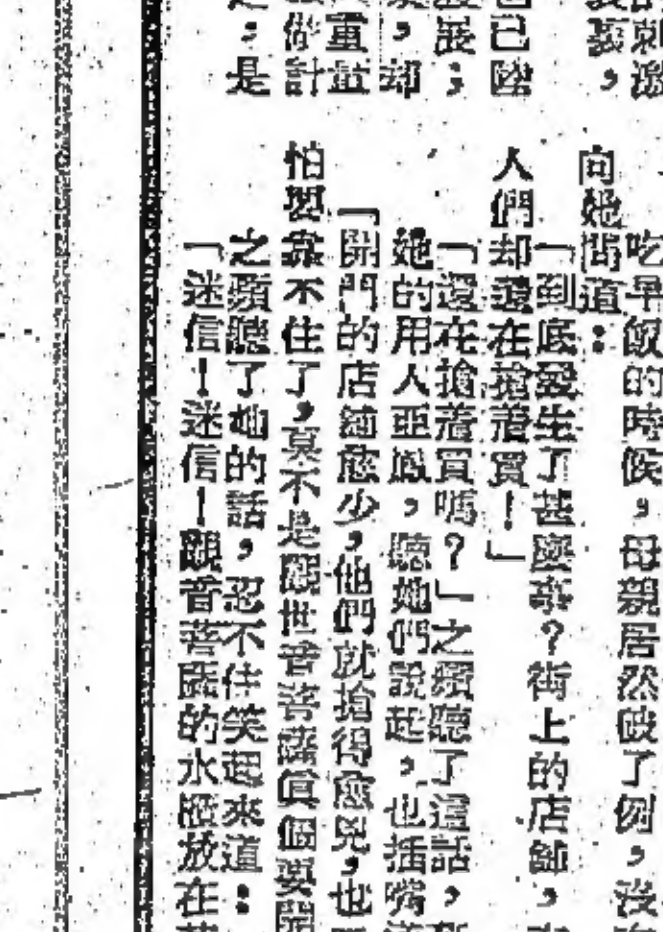 的刺激
裏，
已陸
展；
，却
重量
做計
；是
吃早飯的時候，母親居然破了例，沒
向她問道：
「到底發生了甚麼事？街上的店鋪，
人們却還在搶着買！」
「還在搶着買嗎？」之蘋聽了這話，
她的用人亞鳳，聽她們說起，也插嘴道
「開門的店鋪愈少，他們就搶得愈兇，也
怕要靠不住了，莫不是觀世音菩薩眞個要開
之蘋聽了她的話，忍不住笑起來道：
「迷信！迷信！觀音菩薩的水櫃放在